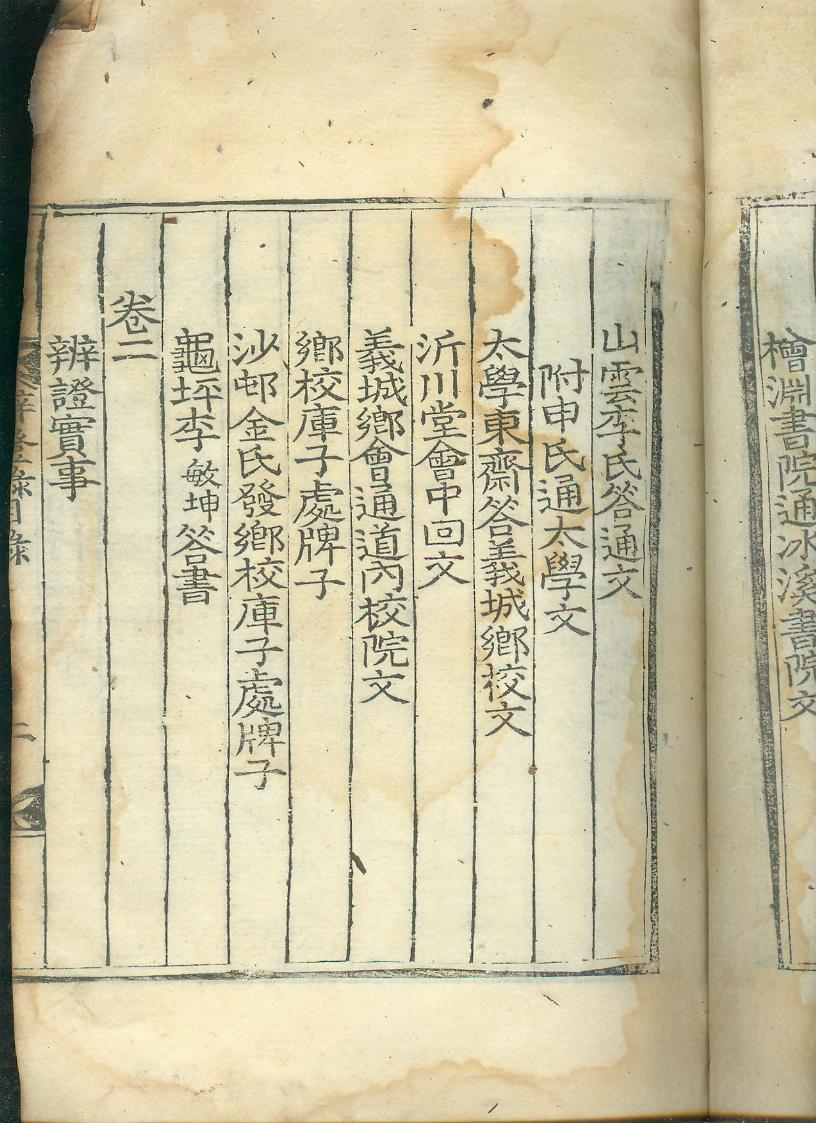 檜淵書院通冰溪書院文
山雲李氏答通文
附申氏通太學文
太學東齋答義城鄉校文
沂川堂會中回文
義城鄉會通道內校院文
鄉校庫子處牌子
沙邨金氏發鄉校庫子處牌子
龜坪李敏坤答書
卷二
辨證實事
辨證錄目錄
二